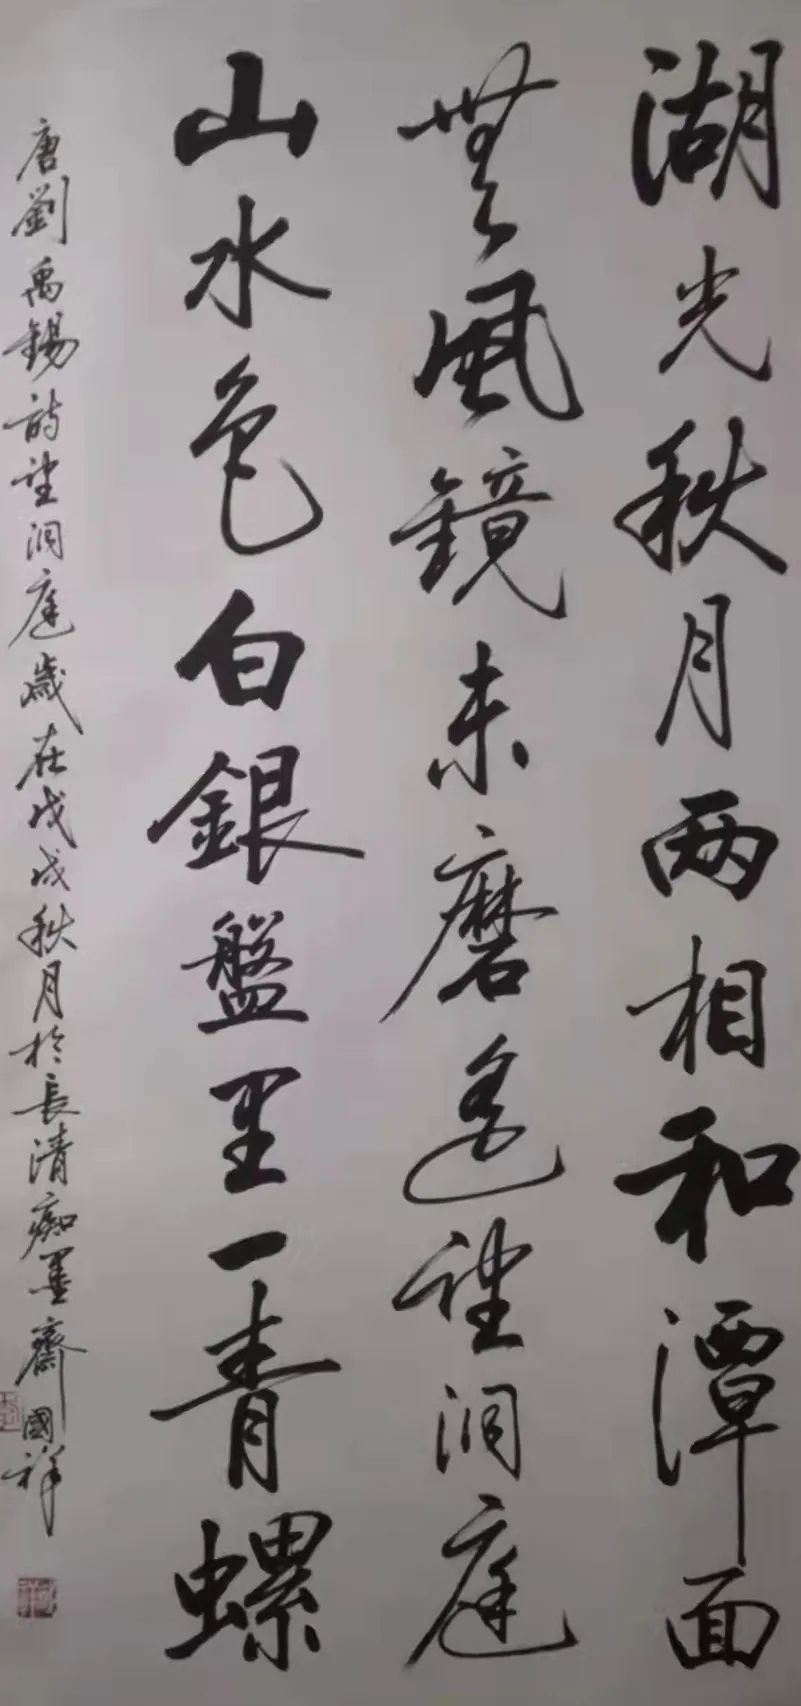 湖光秋月两相和潭面
無風鏡未磨遙望洞庭
山水色白銀盤里一青螺
唐劉禹錫詩望洞庭歲在戊戌秋月於長清痴墨齋國祥